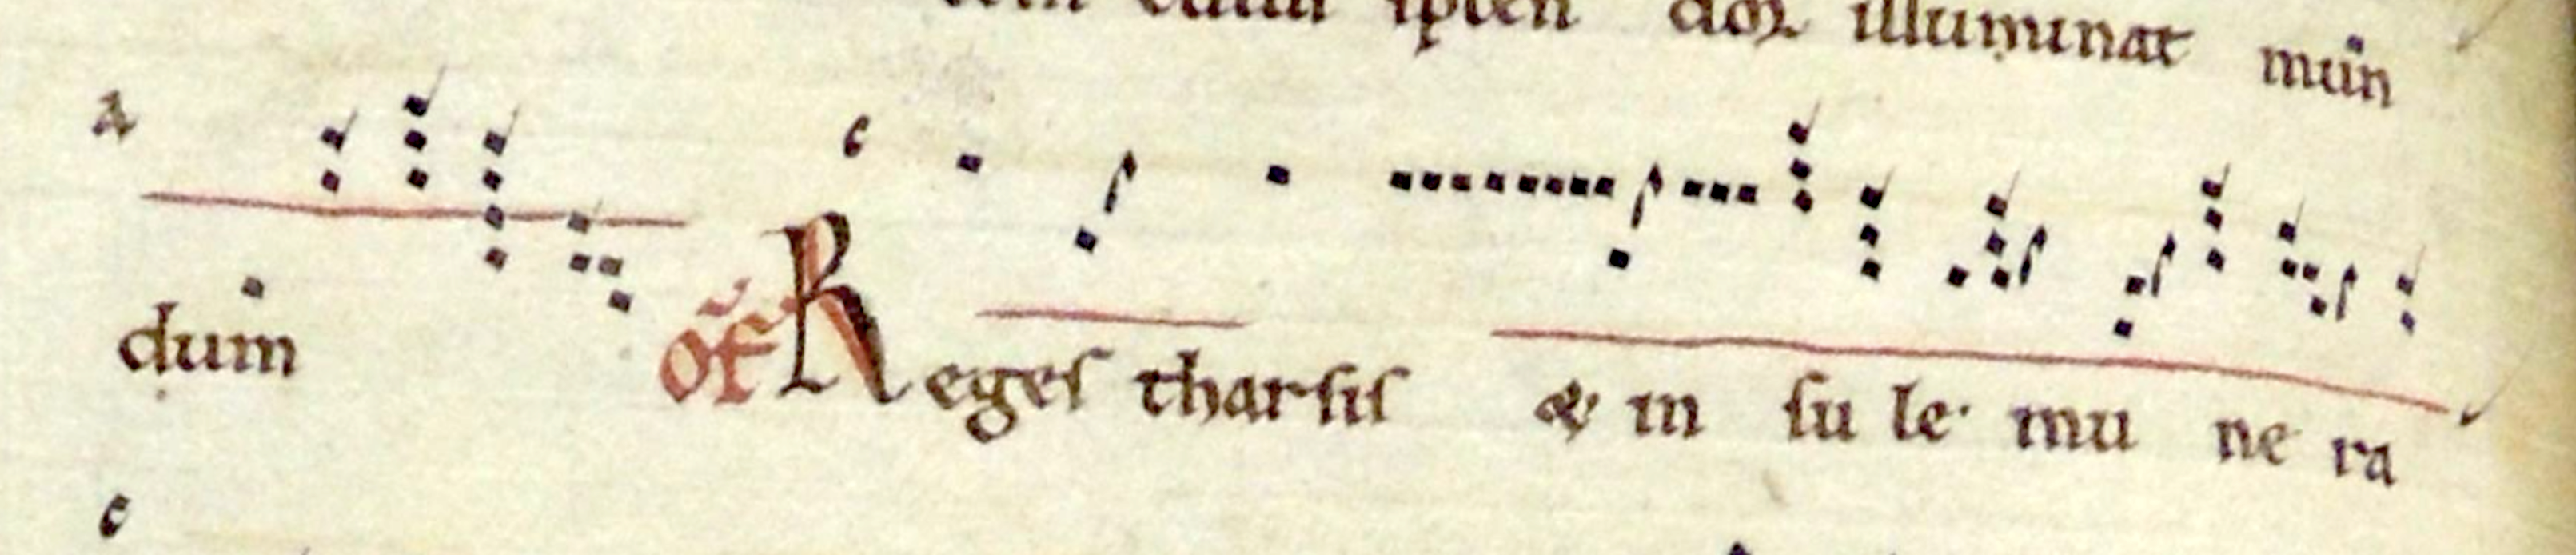 illuminat mun
a c
dum of Reges tharsis & in su le· mu ne ra
c